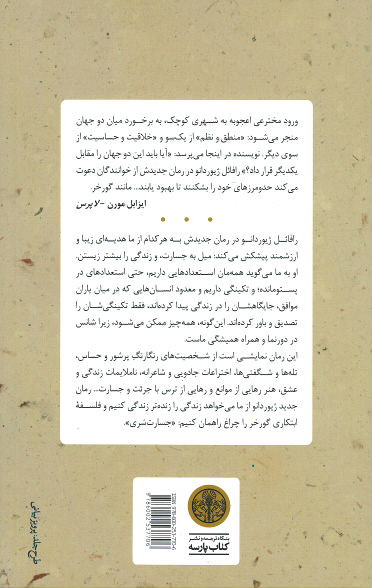 ورود مخترعی اعجوبه به شهری کوچک، به برخورد میان دو جهان
منجر می‌شود: «منطق و نظم» از یک‌سو و «خلاقیت و حساسیت» از
سوی دیگر. نویسنده در اینجا می‌پرسد: «آیا باید این دو جهان را مقابل
یکدیگر قرار داد؟» رافائل ژیوردانو در رمان جدیدش از خوانندگان دعوت
می‌کند حدومرزهای خود را بشکنند تا بهبود یابند... مانند گورخر.
ایزابل عورن - لاپرس
رافائل ژیوردانو در رمان جدیدش به هرکدام از ما هدیه‌ای زیبا و
ارزشمند پیشکش می‌کند: میل به جسارت، و زندگی را بیشتر زیستن.
او به ما می‌گوید همه‌مان استعدادهایی داریم، حتی استعدادهای در
پستومانده؛ و تکینگی داریم و معدود انسان‌هایی که در میان باران
موافق، جایگاهشان را در زندگی پیدا کرده‌اند، فقط تکینگی‌شان را
تصدیق و باور کرده‌اند. این‌گونه، همه‌چیز ممکن می‌شود، زیرا شانس
در دورنما و همراه همیشگی ماست.
این رمان نمایشی است از شخصیت‌های رنگارنگ پرشور و حساس،
تله‌ها و شگفتی‌ها، اختراعات جادویی و شاعرانه، ناملایمات زندگی و
عشق، هنر رهایی از موانع و رهایی از ترس با جرئت و جسارت... رمان
جدید ژیوردانو از ما می‌خواهد زندگی را زنده‌تر زندگی کنیم و فلسفهٔ
ابتکاری گورخر را چراغ راهمان کنیم: «جسارت‌شری».
بنگاه ترجمه و نشر
کتاب پارسه
طرح جلد: پرویز بیانی